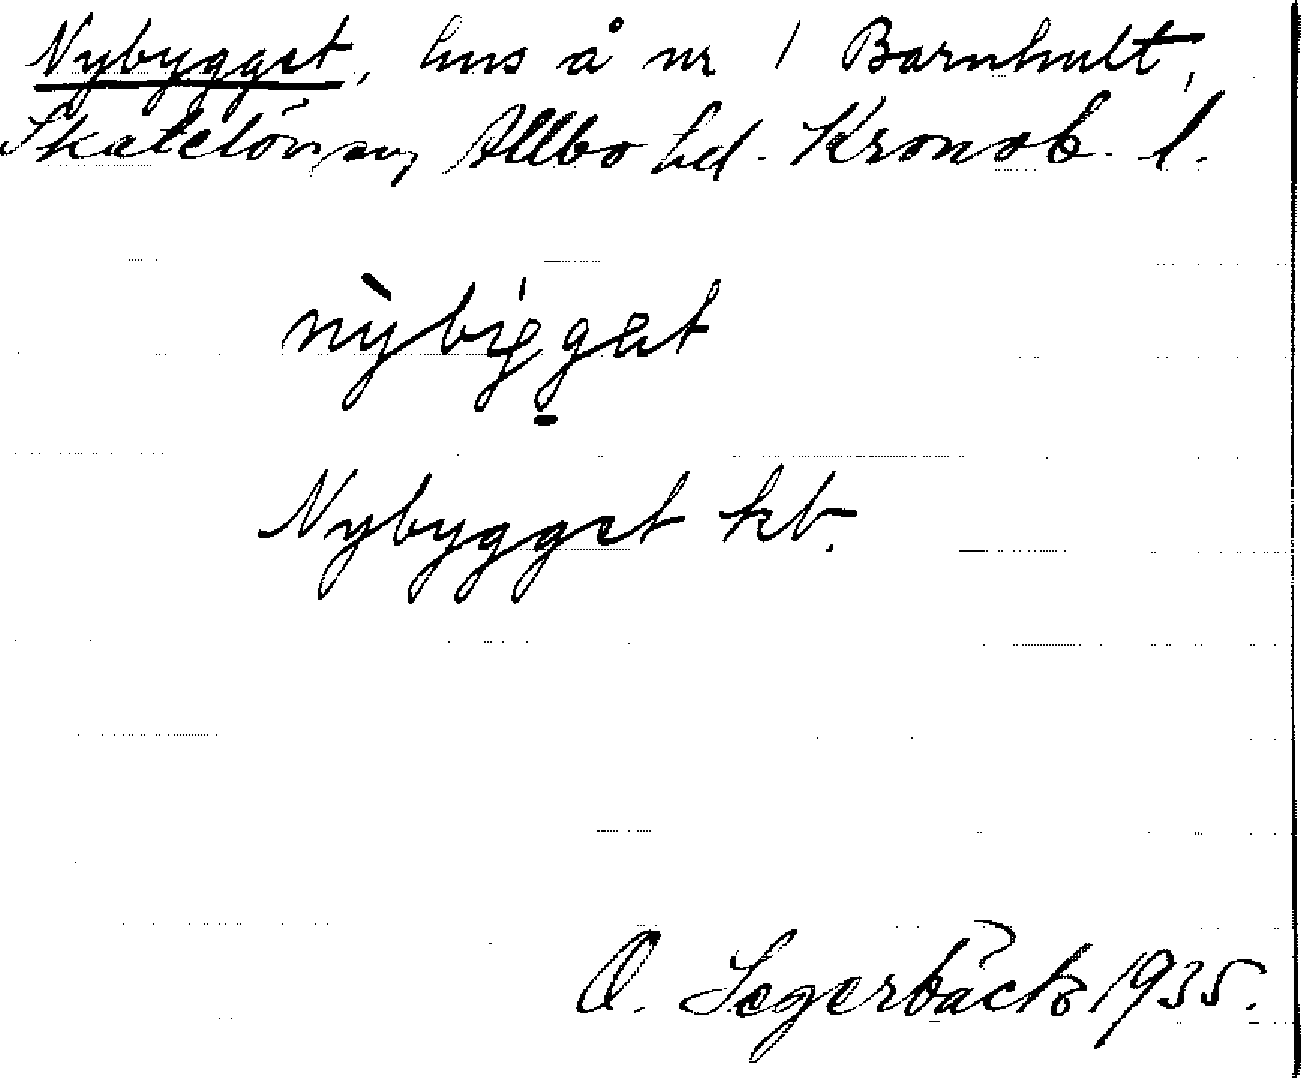 Nybygget, hus å nr 1 Barnhult,
Skatelövs sn, Allbo hd. Kronob. l.
nỳbýg̱gat
Nybygget kb.
O. Segerbäck 1935.